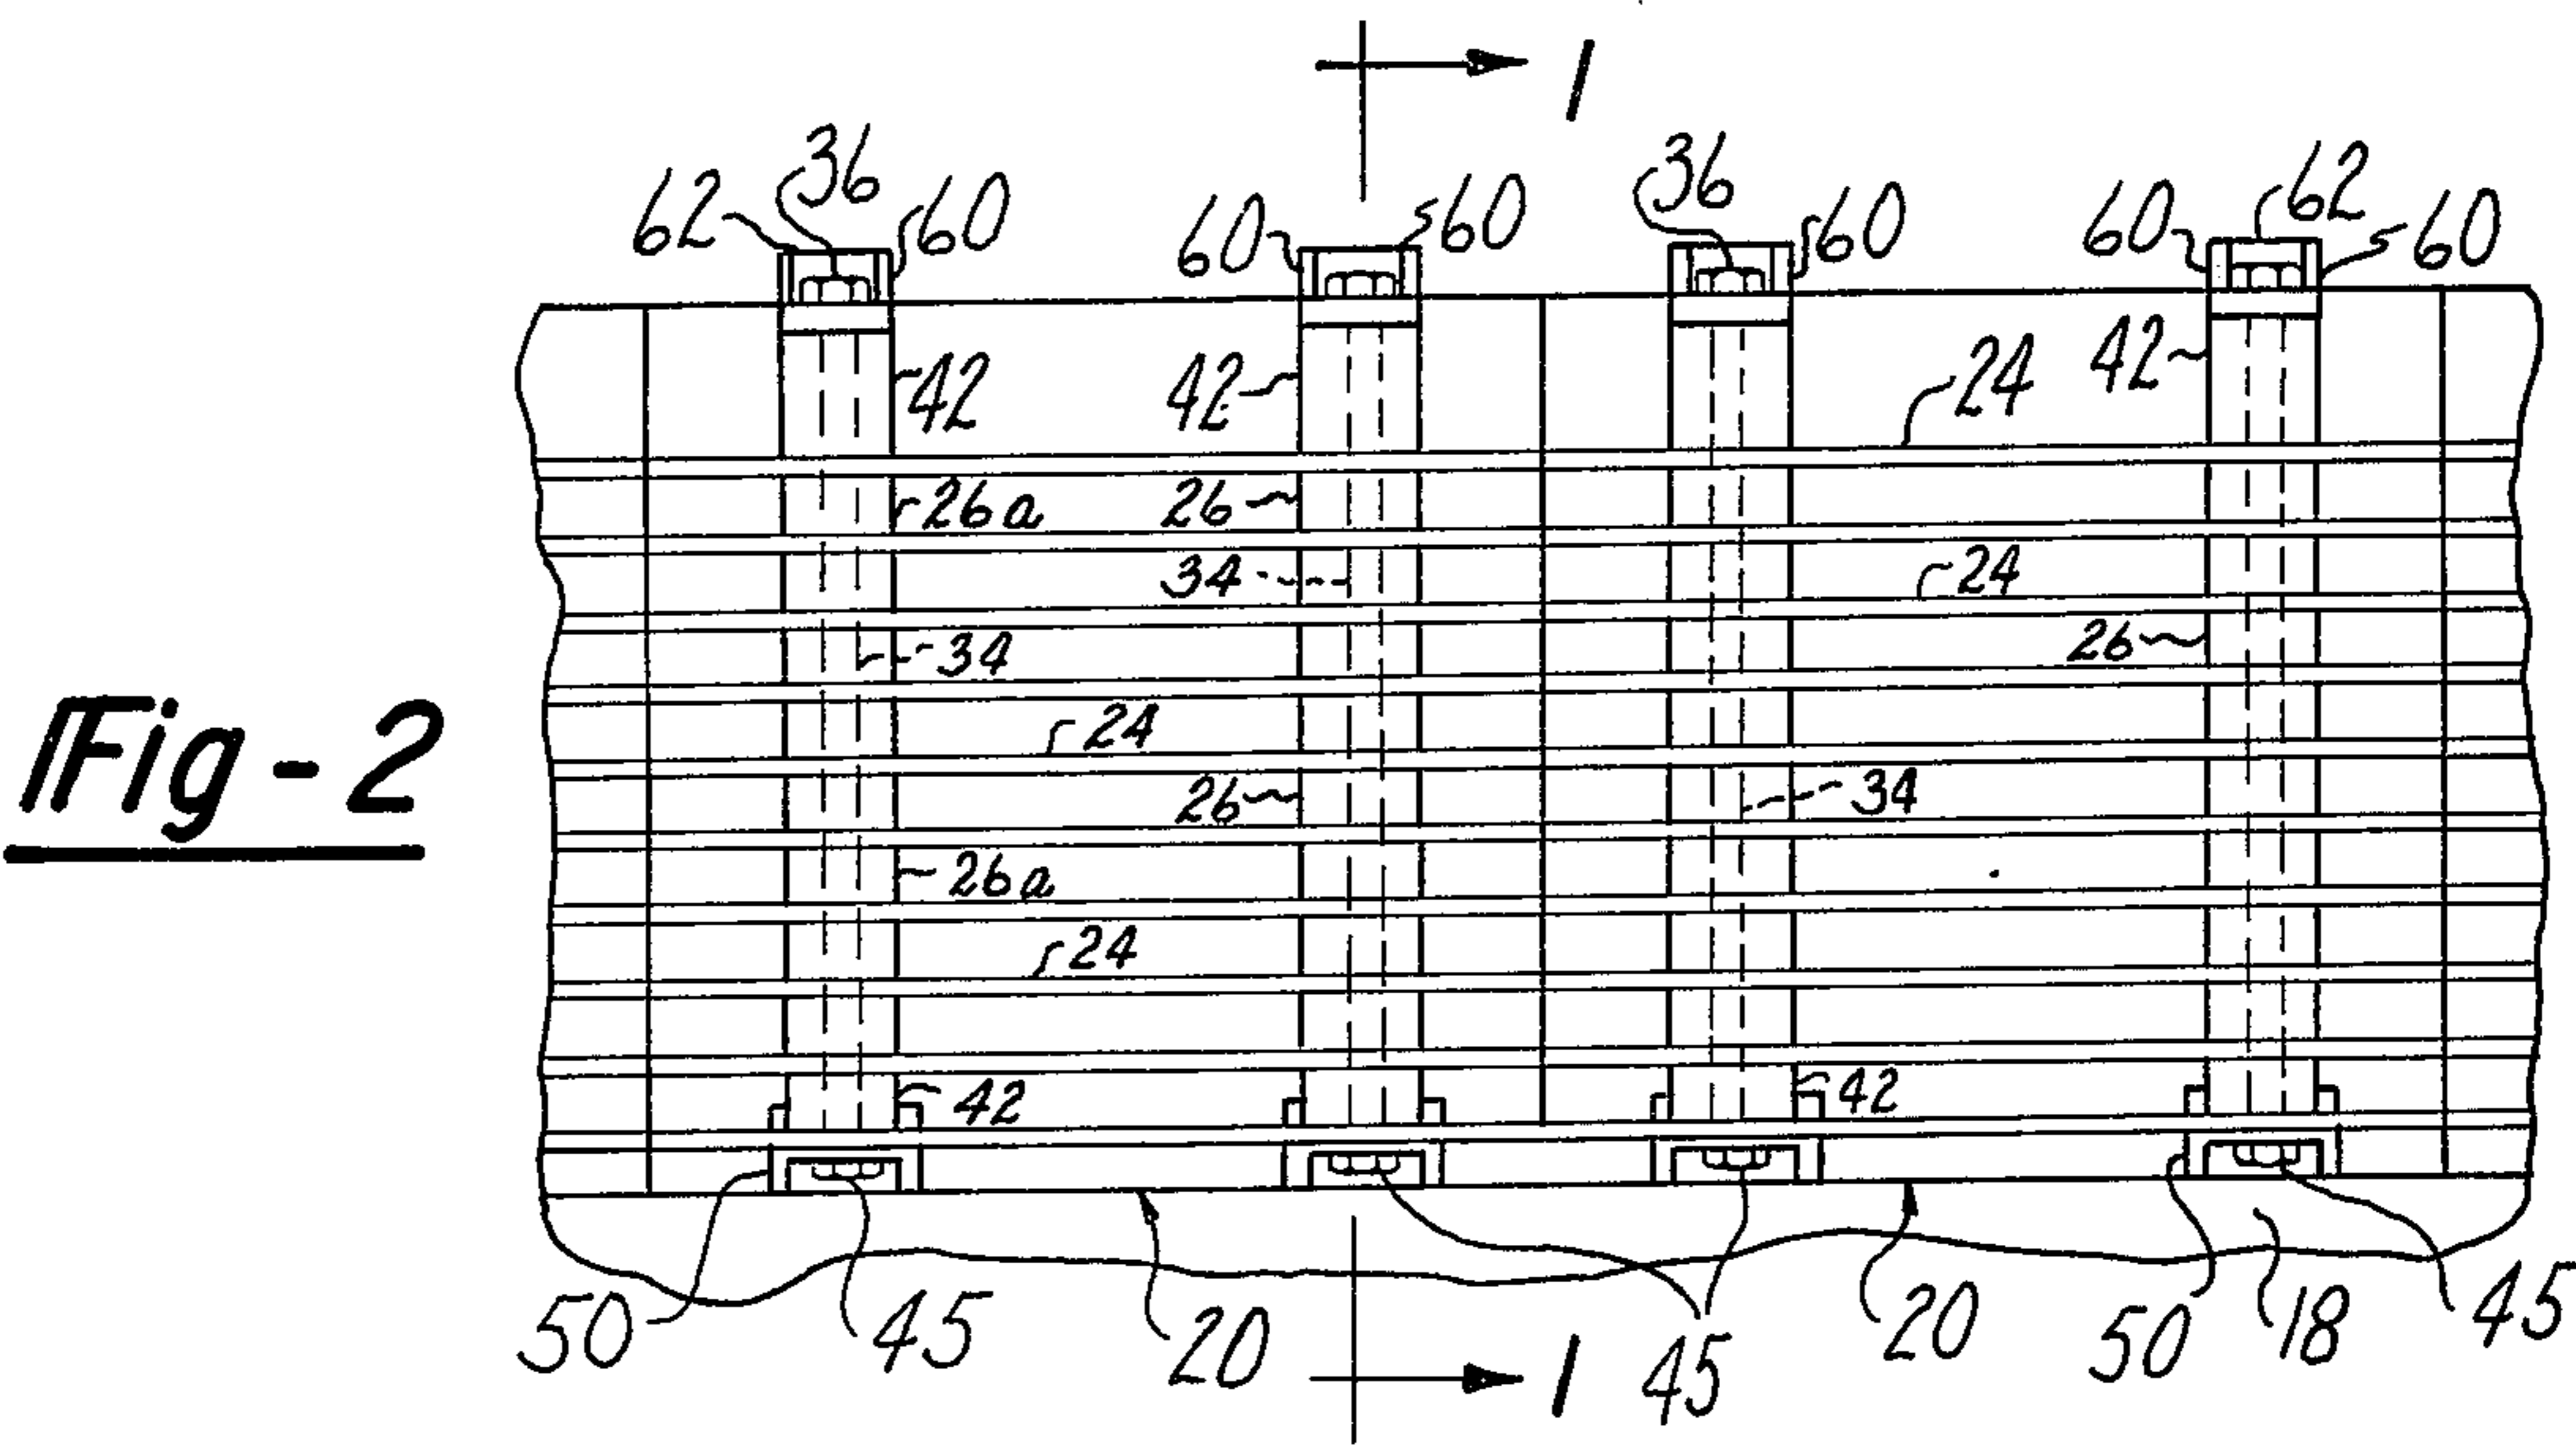 1
36 36
62 60 60 60 60 60 62 60
42 42 42
24
26a 26
34 24
34 26
24
Fig-2
26 34
26a
24
42 42
50 45 20 45 20 50 18 45
1